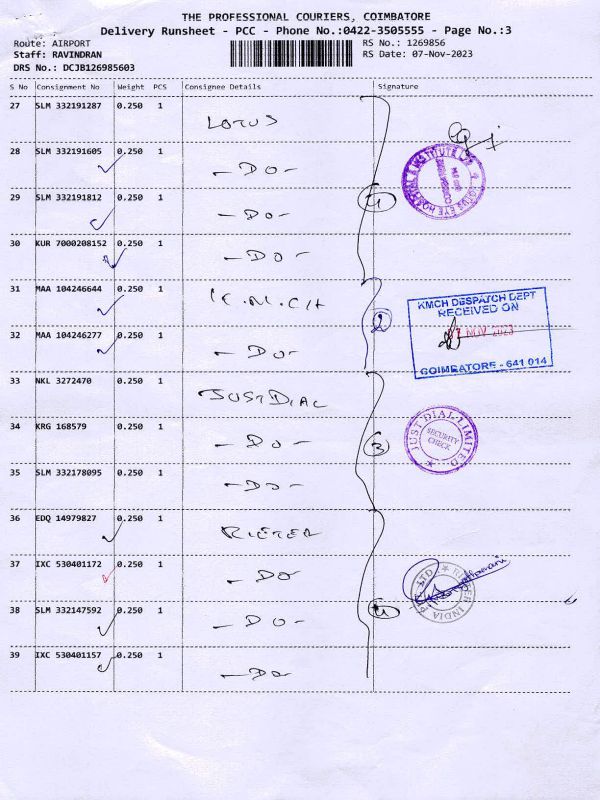 THE PROFESSIONAL COURIERS, COIMBATORE
Delivery Runsheet - PCC - Phone No.:0422-3505555 - Page No.:3
Route: AIRPORT
RS No.: 1269856
Staff: RAVINDRAN
RS Date: 07-Nov-2023
DRS No.: DCJB126985603
S No Consignment No Weight PCS Consignee Details Signature
27 SLM 332191287 0.250 1 LOTUS
28 SLM 332191605 0.250 1 -DO-
29 SLM 332191812 0.250 1 -DO-
4
LOTUS EYE HOSPITAL & INSTITUTE LTD
30 KUR 7000208152 0.250 1 -DO-
31 MAA 104246644 0.250 1 K.M.CH
2
KMCH DESPATCH DEPT
RECEIVED ON
07 NOV 2023
COIMBATORE - 641 014
32 MAA 104246277 0.250 1 -DO-
33 NKL 3272470 0.250 1 JUSTDIAL
34 KRG 168579 0.250 1 -DO-
3
JUST DIAL LIMITED
SECURITY
CHECK
35 SLM 332178095 0.250 1 -DO-
36 EDQ 14979827 0.250 1 RIETER
37 IXC 530401172 0.250 1 -DO
38 SLM 332147592 0.250 1 -DO-
4
RIETER INDIA PVT. LTD
39 IXC 530401157 0.250 1 -DO-